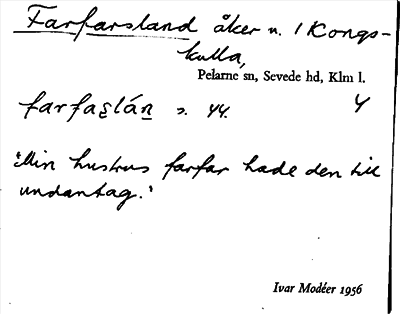 Farfarsland åker n. 1 Kongs-
kulla,
Pelarne sn, Sevede hd, Klm l.
farfas̠lán̠ s. 44. Y
'Min hustrus farfar hade den till
undantag.'
Ivar Modéer 1956